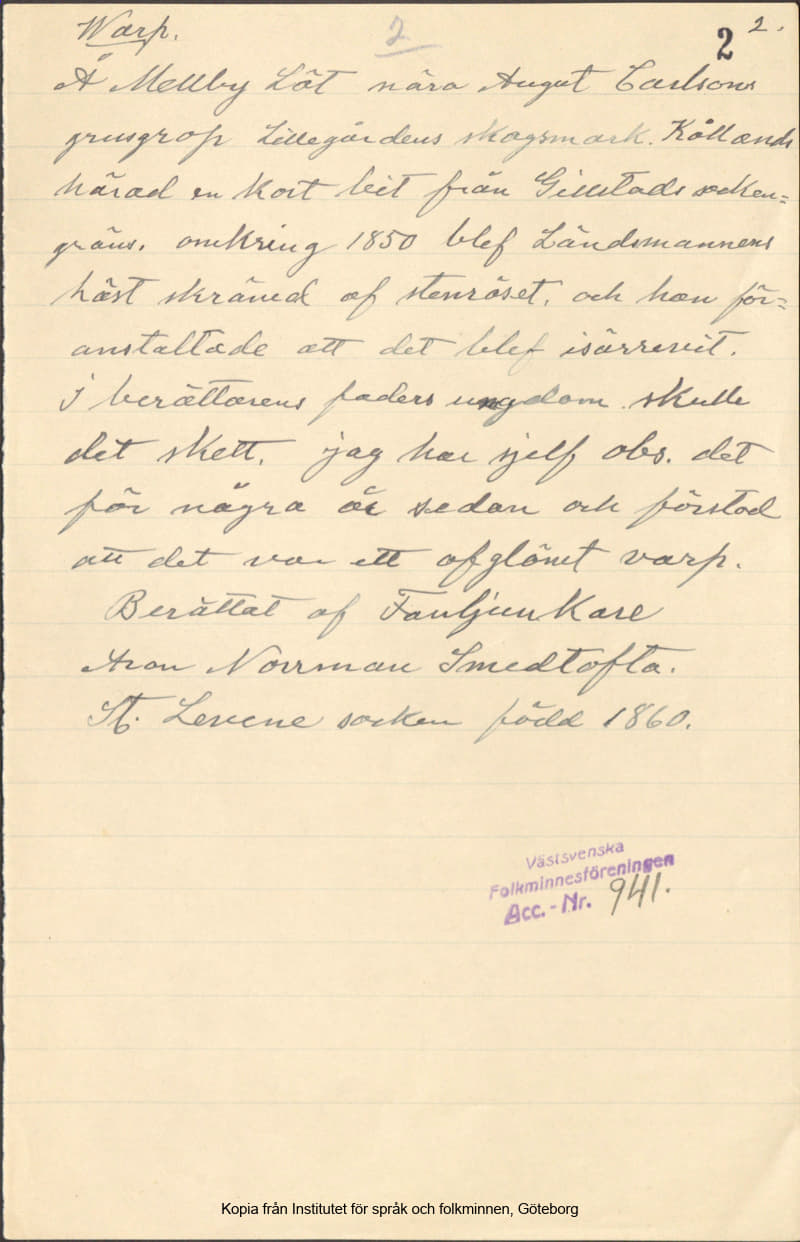 Warp. 2 2 2.
Å Mellby Löt nära August Carlsons
grusgrop Lillegårdens skogsmark. Kållands
härad en kort bit från Gillstads socken=
gräns. omkring 1850 blef Ländsmannens
häst skrämd af stenröset, och han för=
anstaltade att det blef isärrevit.
I berättarens faders ungdom skulle
det skett. jag har sjelf obs. det
för några år sedan och förstod
att det var ett afglömt varp.
Berättat af Fanljunkare
Aron Norrman Smedtofta.
St. Levene socken född 1860.
Västsvenska
Folkminnesföreningen
Acc.-Nr. 941.
Kopia från Institutet för språk och folkminnen, Göteborg